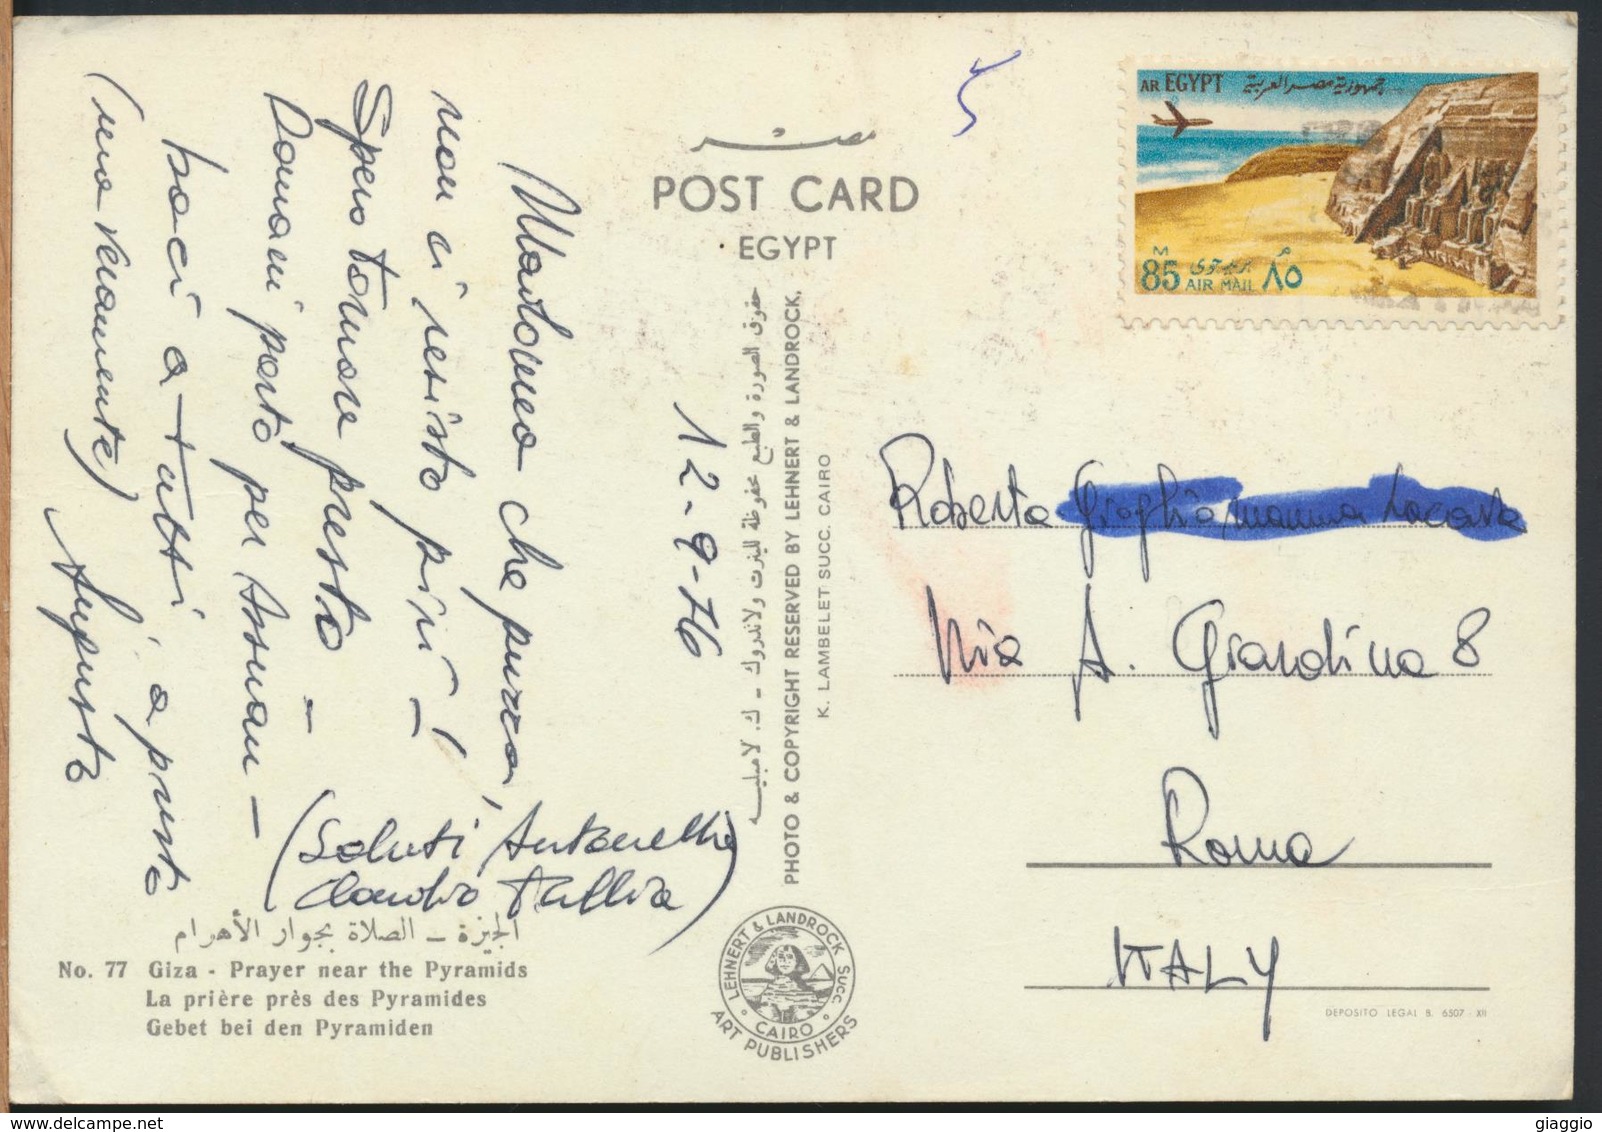 مصر
POST CARD
EGYPT
AR EGYPT جمهورية مصر العربية
M
85 بريد جوى ٨٥
AIR MAIL
12-9-76
che puzza,
non ci resisto più! -
Spero tornare presto -
Domani parto per Assuan -
baci a tutti a presto
(Saluti Antonella
Claudio
Augusto
حقوق الصورة والطبع محفوظة للينرت ولاندروك - ك. لامبليه
PHOTO & COPYRIGHT RESERVED BY LEHNERT & LANDROCK.
K. LAMBELET SUCC. CAIRO
Roberta
Via A. Grandina 8
Roma
ITALY
الجيزة - الصلاة بجوار الأهرام
No. 77 Giza - Prayer near the Pyramids
La prière près des Pyramides
Gebet bei den Pyramiden
LEHNERT & LANDROCK SUCC.
CAIRO
ART PUBLISHERS
DEPOSITO LEGAL B. 6507 - XII
giaggio